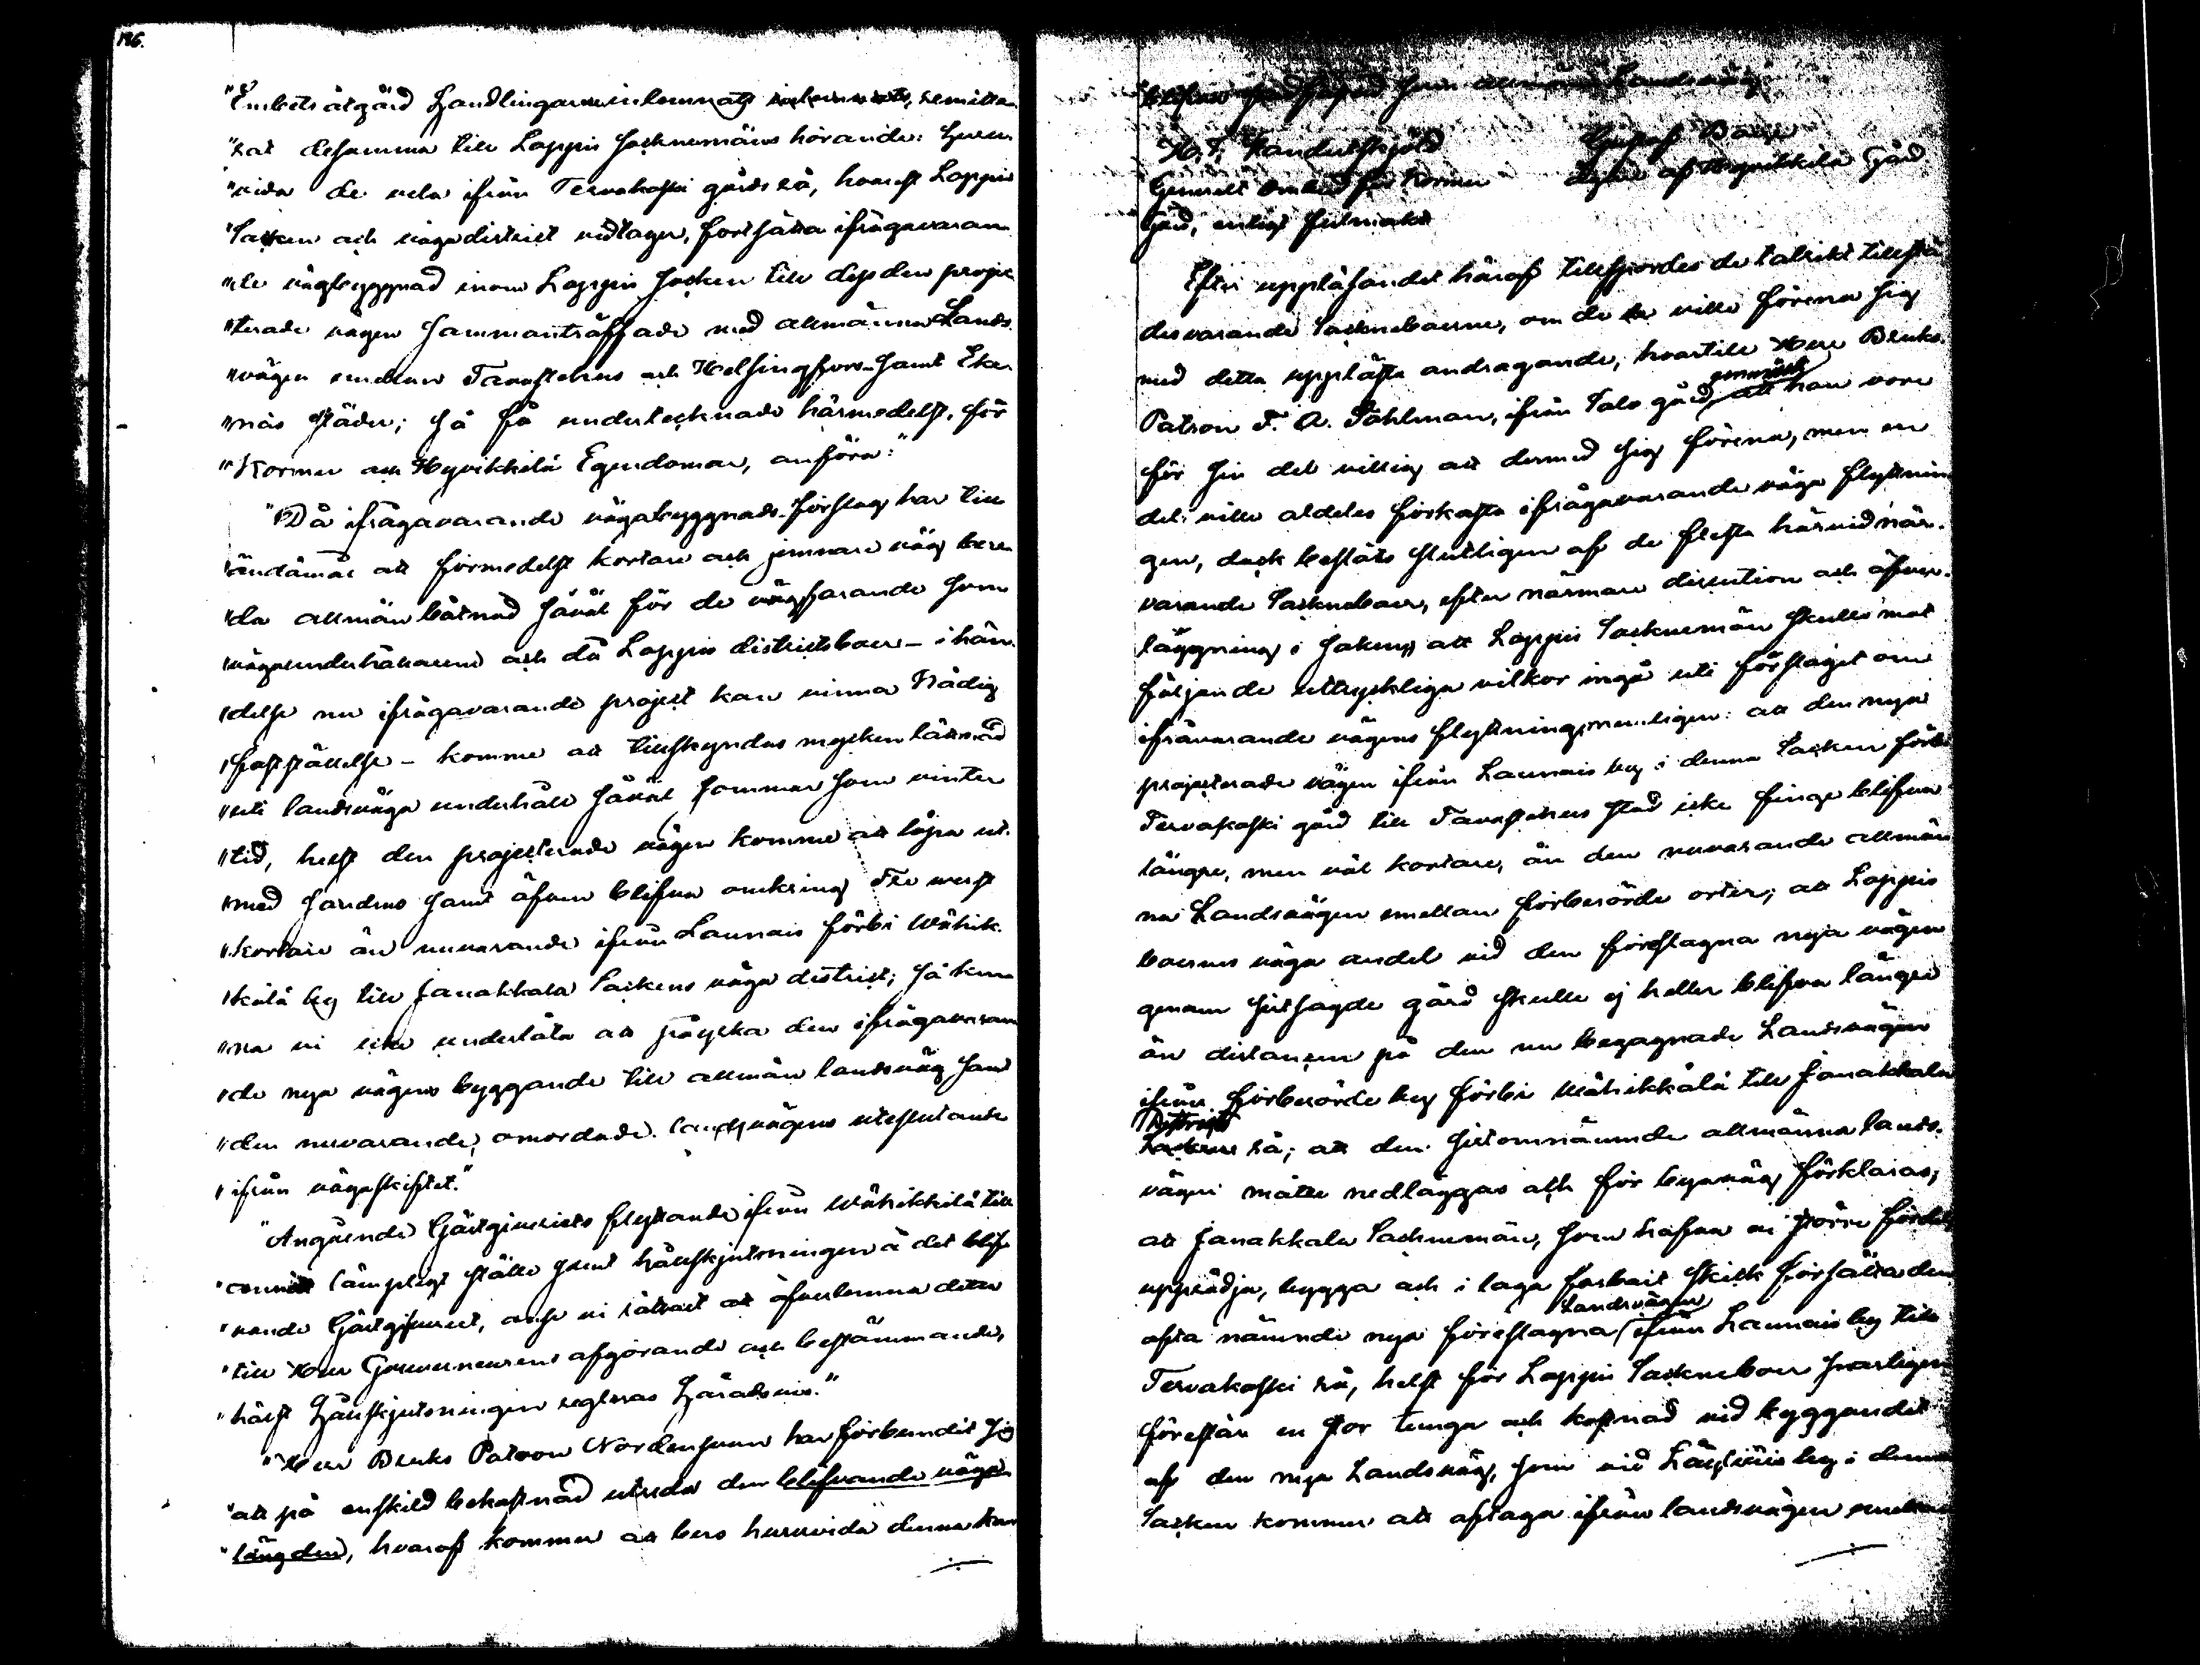 126.
"Embets åtgärd Handlingarne inlemnats, remitte
"rat desamma till Loppis Socknemäns hörande: huru
"vida de vela ifrån Tervakoski gårds rå, hvarest Loppis
"Socken och väga district vidtager, fortsätta ifrågavaran
"de vägbyggnad inom Loppis Socken till dess den projec
"terade vägen sammanträffade med allmänna Lands
"vägen emellan Tavastehus och Helsingfors samt Eke
"näs städer; så få undertecknade härmedelst, för
"Kormu och Hyvikkilä Egendomar, anföra:"
"Då ifrågavarande vägabyggnads förslag har till
"ändamål att förmedelst kortare och jemnare väg bere
"da allmän båtnad såväl för de vägfarande som
"vägaunderhållarene och då Loppis districtsboer - i hän
"delse nu ifrågavarande project kan vinna Nådig
"fastställelse - komme att tillskyndas mycken lättnad
"uti landsväga underhåll såväl sommar som vinter
"tid, helst den projecterade vägen komme att löpa ut
"med sandmo samt äfven blifva omkring Tre werst
"kortare än nuvarande ifrån Launois förbi Wähik
"kälä by till Janakkala Sockens väga district; så kun
"na vi icke underlåta att påyrka den ifrågavaran
"de nya vägens byggande till allmän landsväg samt
"den nuvarande, omordade landsvägens uteslutande
"ifrån vägaskiftet."
"Angående Gästgifveriets flyttande ifrån Wähikkälä till
"annat lämpligt ställe samt hållskjutsningen å det blif
"vande Gästgifveriet, anse vi rättast att öfverlemna detta
"till Herr Gouverneurens afgörande och bestämmande,
"hälst Hållskjutsningen regleras Häradsvis."
"Herr Bruks Patron Nordensvan har förbundit sig
"att på enskild bekostnad utreda den blifvande väga
"längden, hvaraf kommer att bero huruvida denna kan
"blifva fastställd som allmän Landsväg"
H. F. Gustaf
Generelt ombud för Kormu Egare af Hyvikkilä Gård
Gård, enligt fullmakt
Efter uppläsandet häraf tillspordes de talrikt tillstä
desvarande Sockneboerne, om de ville förena sig
med detta upplästa andragande, hvartill Herr Bruks
Patron F. A. Påhlman, ifrån Salo gård, genmälte att han vore
för sin del villig att dermed sig förena, men en
del ville aldeles förkasta ifrågavarande väga flyttnin
gen, dock beslöts slutligen af de flesta härvid när
varande Sockneboer, efter närmare discution och öfver
läggning i saken, att Loppis Socknemän skulle mot
följande uttryckliga vilkor ingå uti förslaget om
ifråvarande vägens flyttning, nemligen: att den nya
projecterade vägen ifrån Launois by i denna Socken förbi
Tervakoski gård till Tavastehus stad icke finge blifva
längre, men väl kortare, än den nuvarande allmän
na Landsvägen emellan förberörde orter; att Loppis
boernes väga andel vid den föreslagna nya vägen
genom sistsagde gård skulle ej heller blifva längre
än distancen på den nu begagnade Landsvägen
ifrån förberörde by förbi Wähikkälä till Janakkala
Districts rå; att den sistomnämnde allmänna lands
vägen måtte nedläggas och för byaväg förklaras;
att Janakkala Socknemän, som hafva en större fördel
upprödja, bygga och i laga farbait skick försätta den
ofta nämnde nya föreslagna Landsvägen ifrån Launois by till
Tervakoski rå, helst för Loppis Socknebor
förestår en stor tunga och kostnad vid byggandet
af den nya Landsväg, som vid by i denna
Socken kommer att aftaga ifrån landsvägen emellan